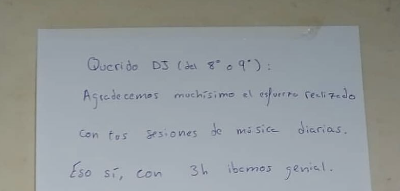 Querido DJ (del 8º o 9º):
Agradecemos muchísimo el esfuerzo realizado
con tus sesiones de música diarias.
Eso sí, con 3h íbamos genial.